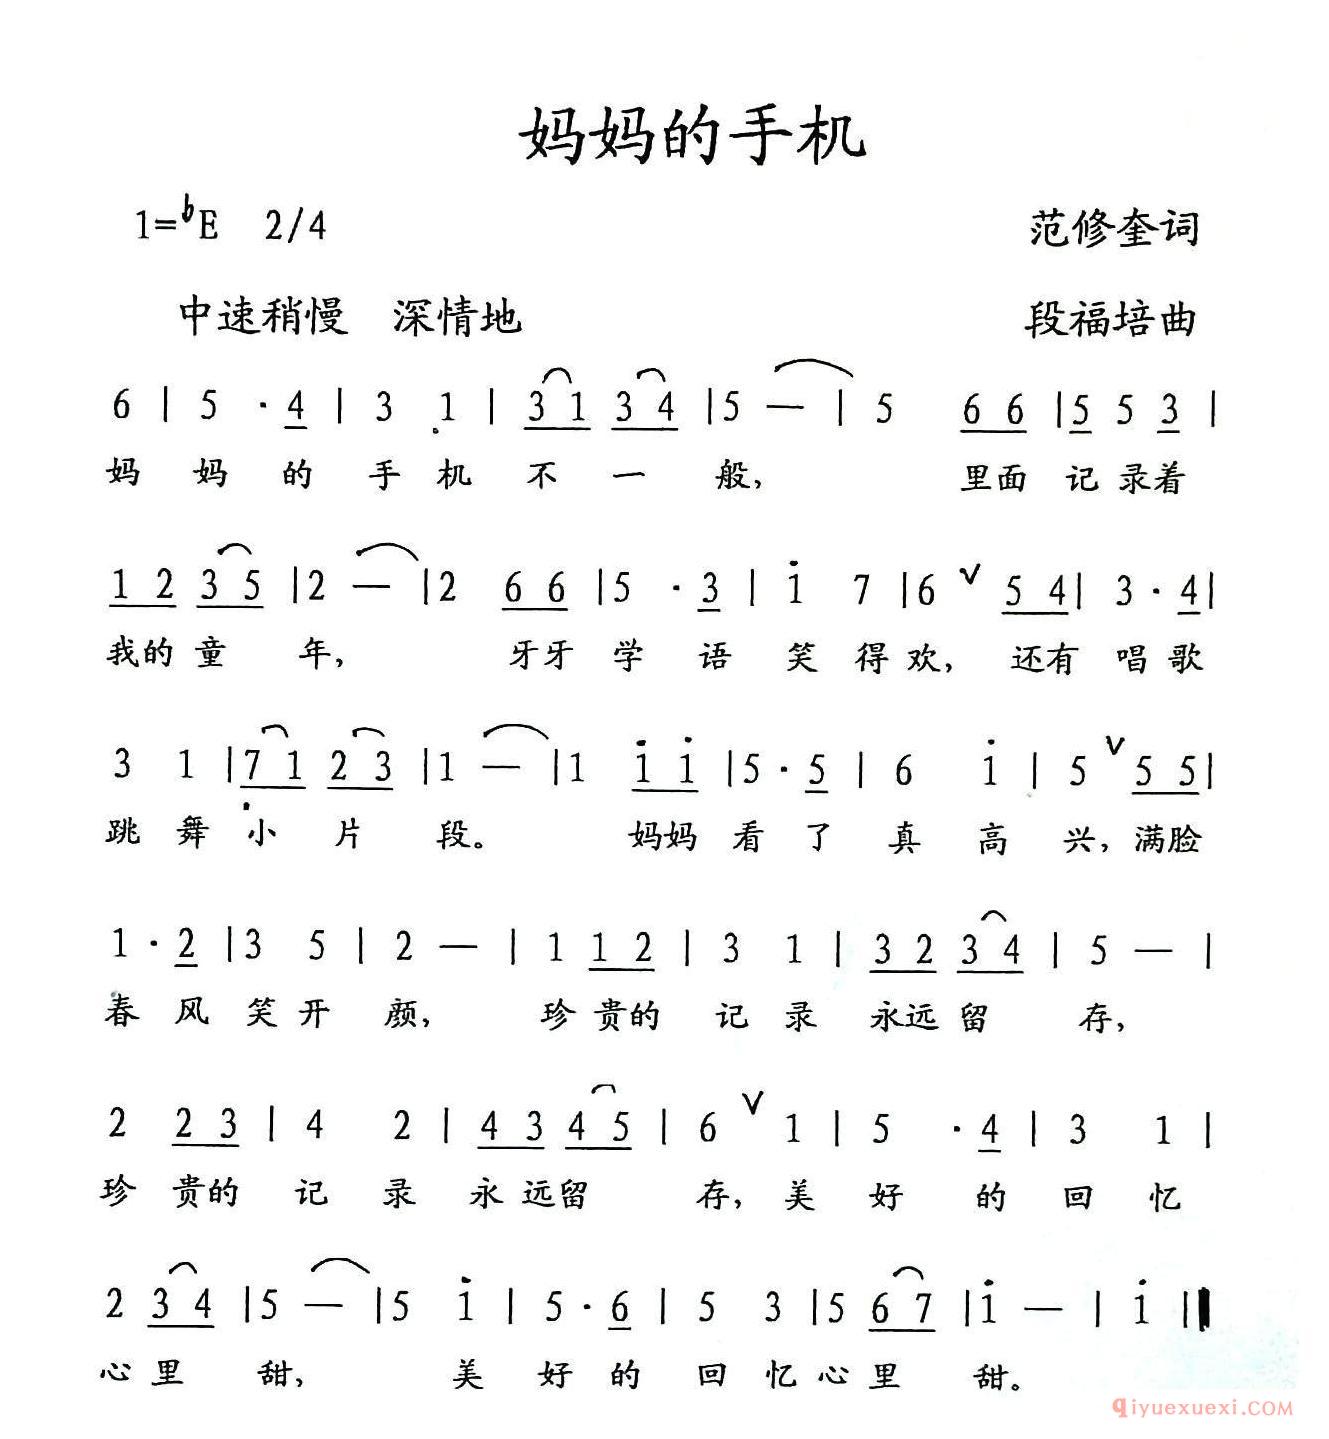 妈妈的手机
1=bE 2/4 范修奎词
中速稍慢 深情地 段福培曲
6 | 5 · 4 | 3 1 | 3 1 3 4 | 5 — | 5 6 6 | 5 5 3 |
妈 妈 的 手 机 不 一 般， 里面 记 录着
1 2 3 5 | 2 — | 2 6 6 | 5 · 3 | i 7 | 6 ∨ 5 4 | 3 · 4 |
我的 童 年， 牙牙 学 语 笑 得 欢， 还有 唱 歌
3 1 | 7 1 2 3 | 1 — | 1 i i | 5 · 5 | 6 i | 5 ∨ 5 5 |
跳 舞 小 片 段。 妈妈 看 了 真 高 兴， 满脸
1 · 2 | 3 5 | 2 — | 1 1 2 | 3 1 | 3 2 3 4 | 5 — |
春 风 笑 开 颜， 珍 贵的 记 录 永远 留 存，
2 2 3 | 4 2 | 4 3 4 5 | 6 ∨ 1 | 5 · 4 | 3 1 |
珍 贵的 记 录 永 远留 存， 美 好 的 回 忆
2 3 4 | 5 — | 5 i | 5 · 6 | 5 3 | 5 6 7 | i — | i ‖
心 里 甜， 美 好 的 回 忆 心 里 甜。
qiyuexuexi.COM